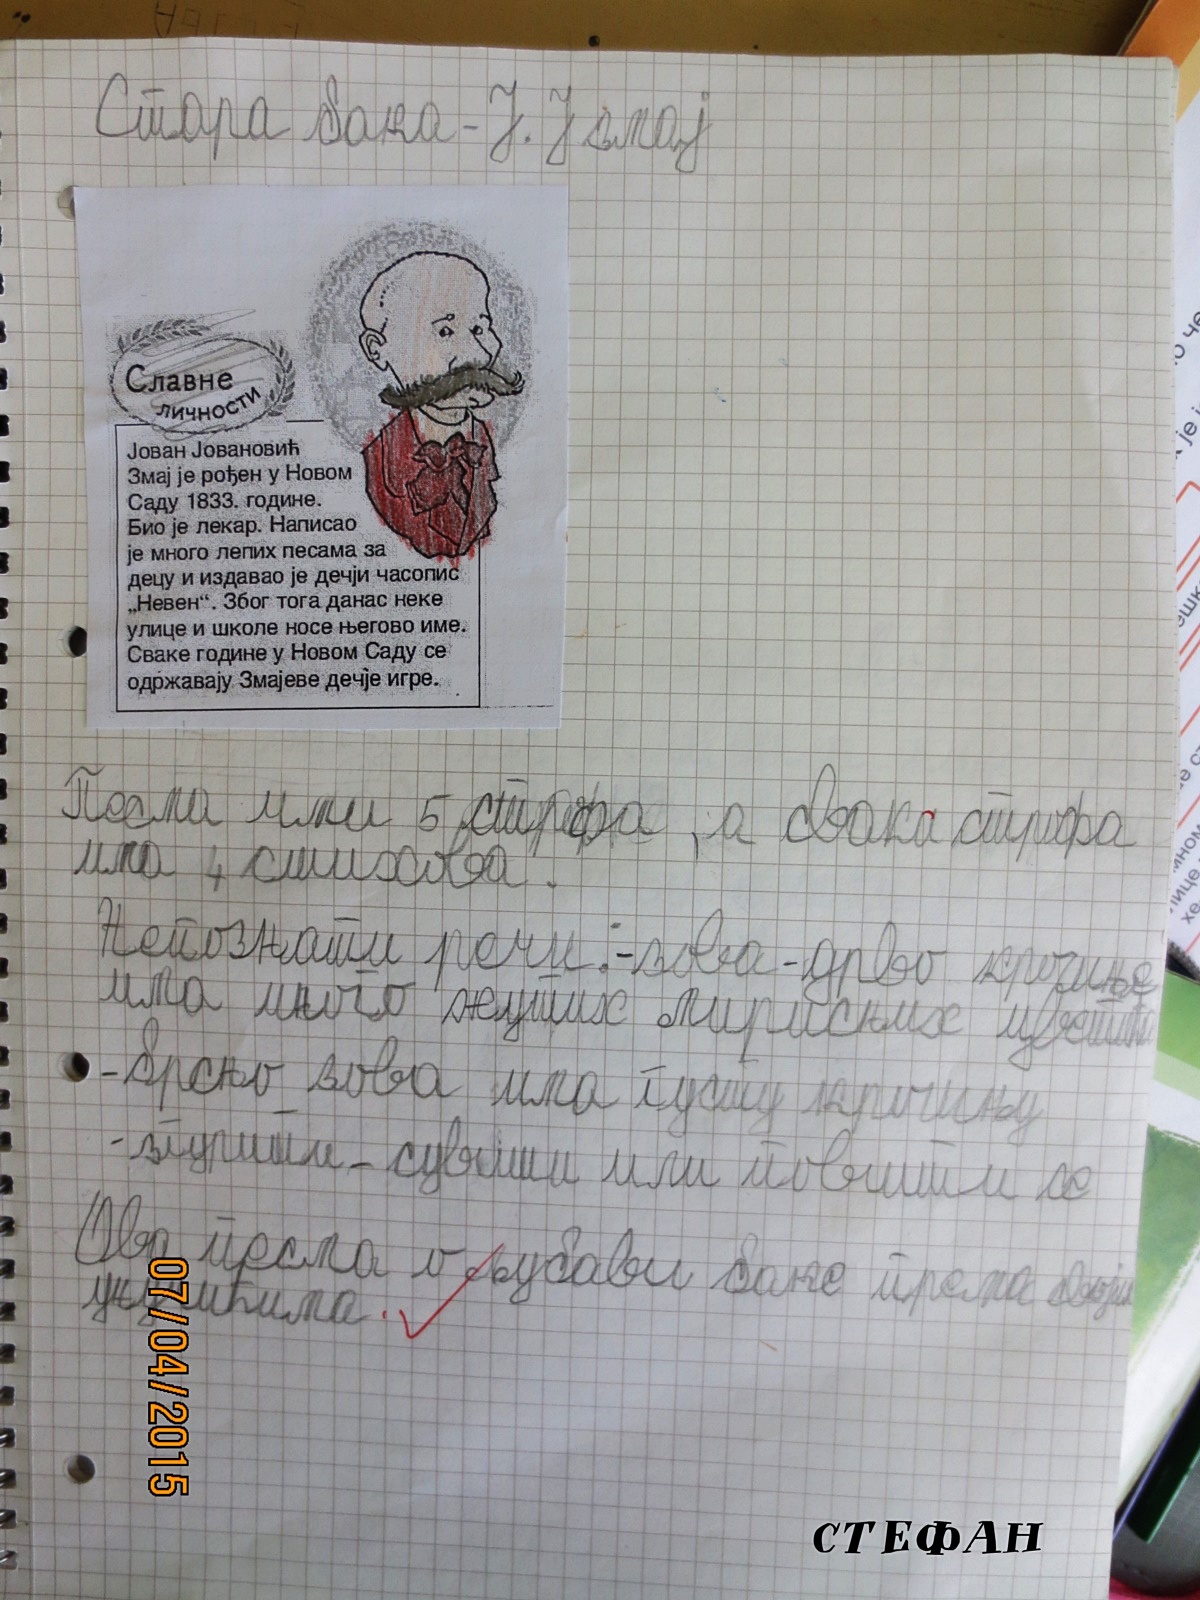 Стара бака - Ј. Ј Змај
Славне
личности
Јован Јовановић
Змај је рођен у Новом
Саду 1833. године.
Био је лекар. Написао
је много лепих песама за
децу и издавао је дечји часопис
„Невен“. Због тога данас неке
улице и школе носе његово име.
Сваке године у Новом Саду се
одржавају Змајеве дечје игре.
Песма има 5 строфа, а свака строфа
има 4 стихова.
Непознати речи: - зова - дрво крочиње
има много жутих мирисних цветића
- зова има густу крочињу
- згурити - сувити или повити се
Ова песма о љубави баке према својим
унучићима.
07/04/2015
СТЕФАН